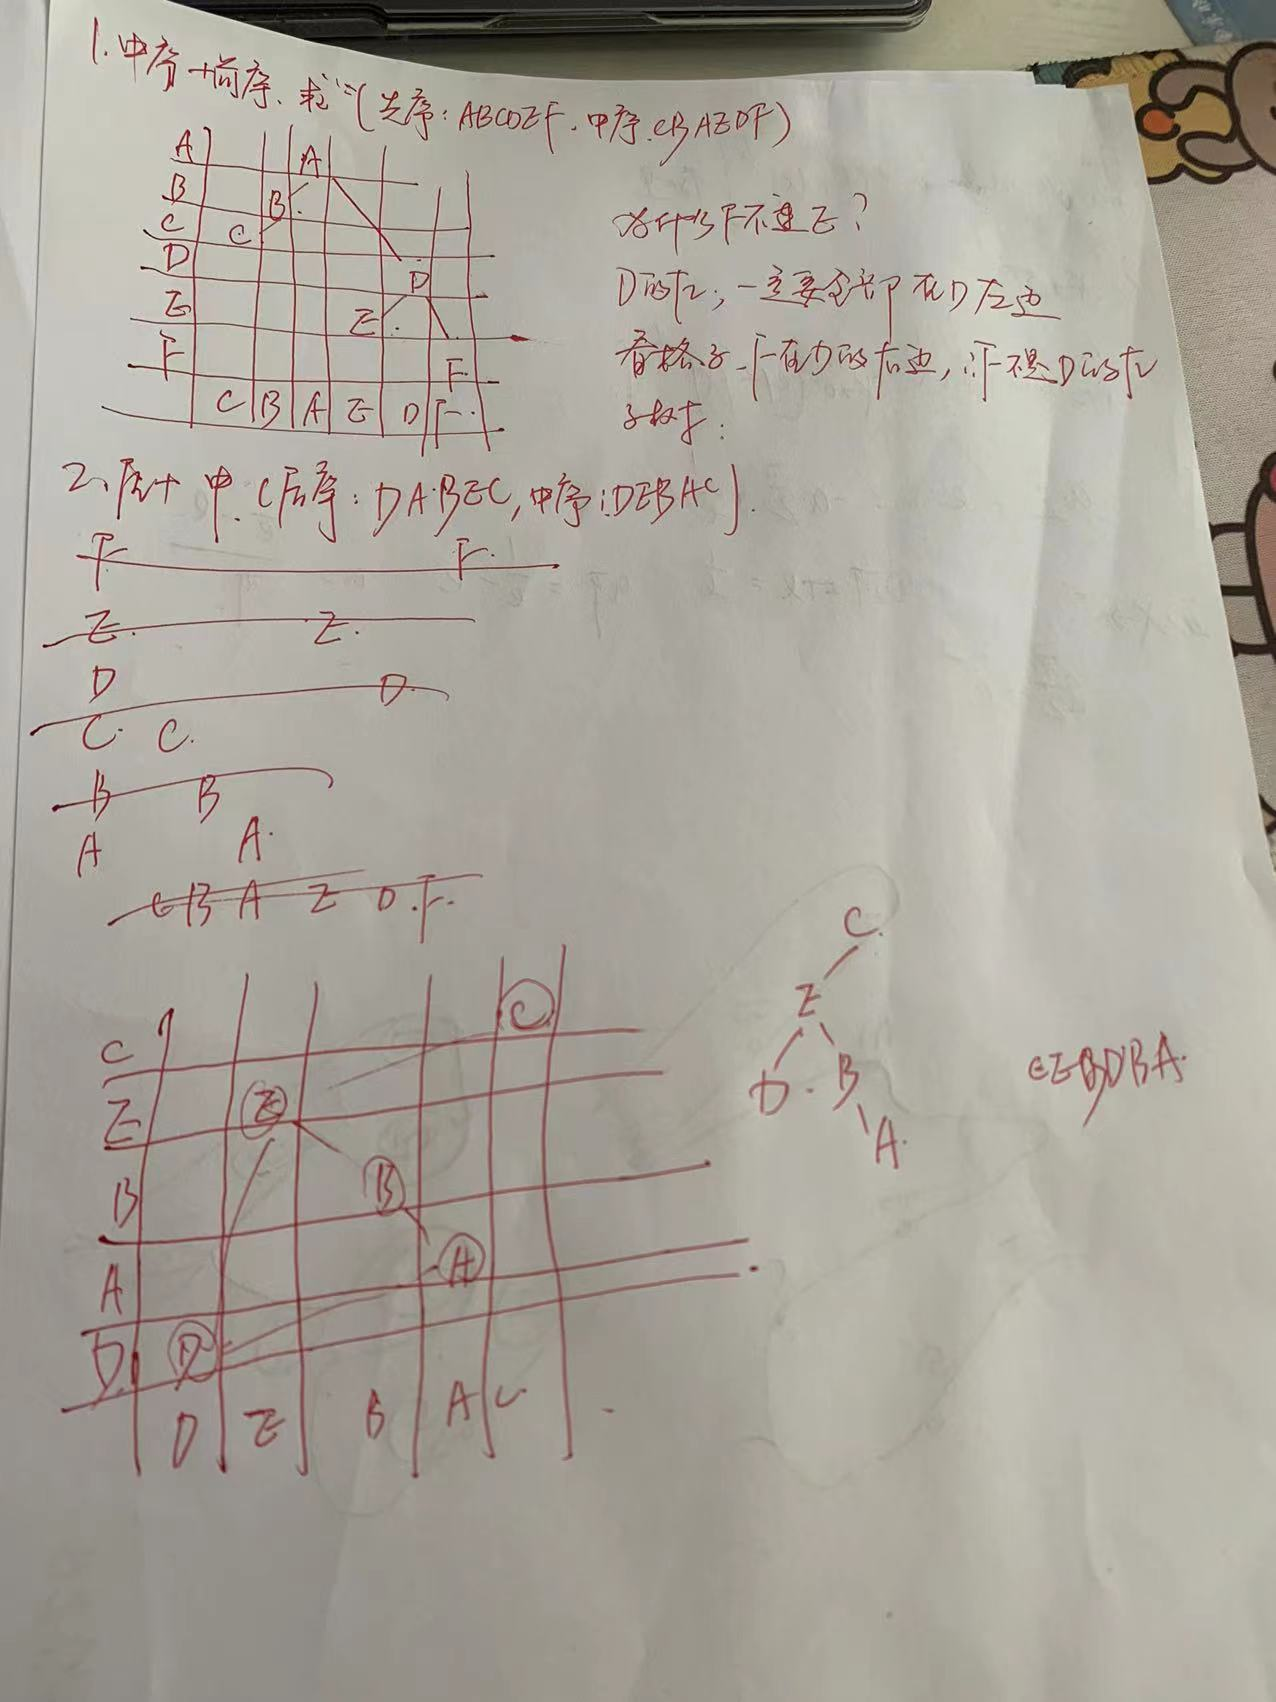 1. 中序+前序、求二(先序:ABCDEF.中序.CBAEDF)
A A
B B
C C
D D
E E
F F
C B A E D F
为什么F不连E?
D的左,一定要全部在D左边
看格子.F在D的右边,∴F不是D的左
子树
2、后+中.(后序:DABEC,中序:DEBAC).
F F
E E
D D
C C
B B
A A
C B A E D F
C C
E E
B B
A A
D D
D E B A C
C
E
D B
A
CEBDBA